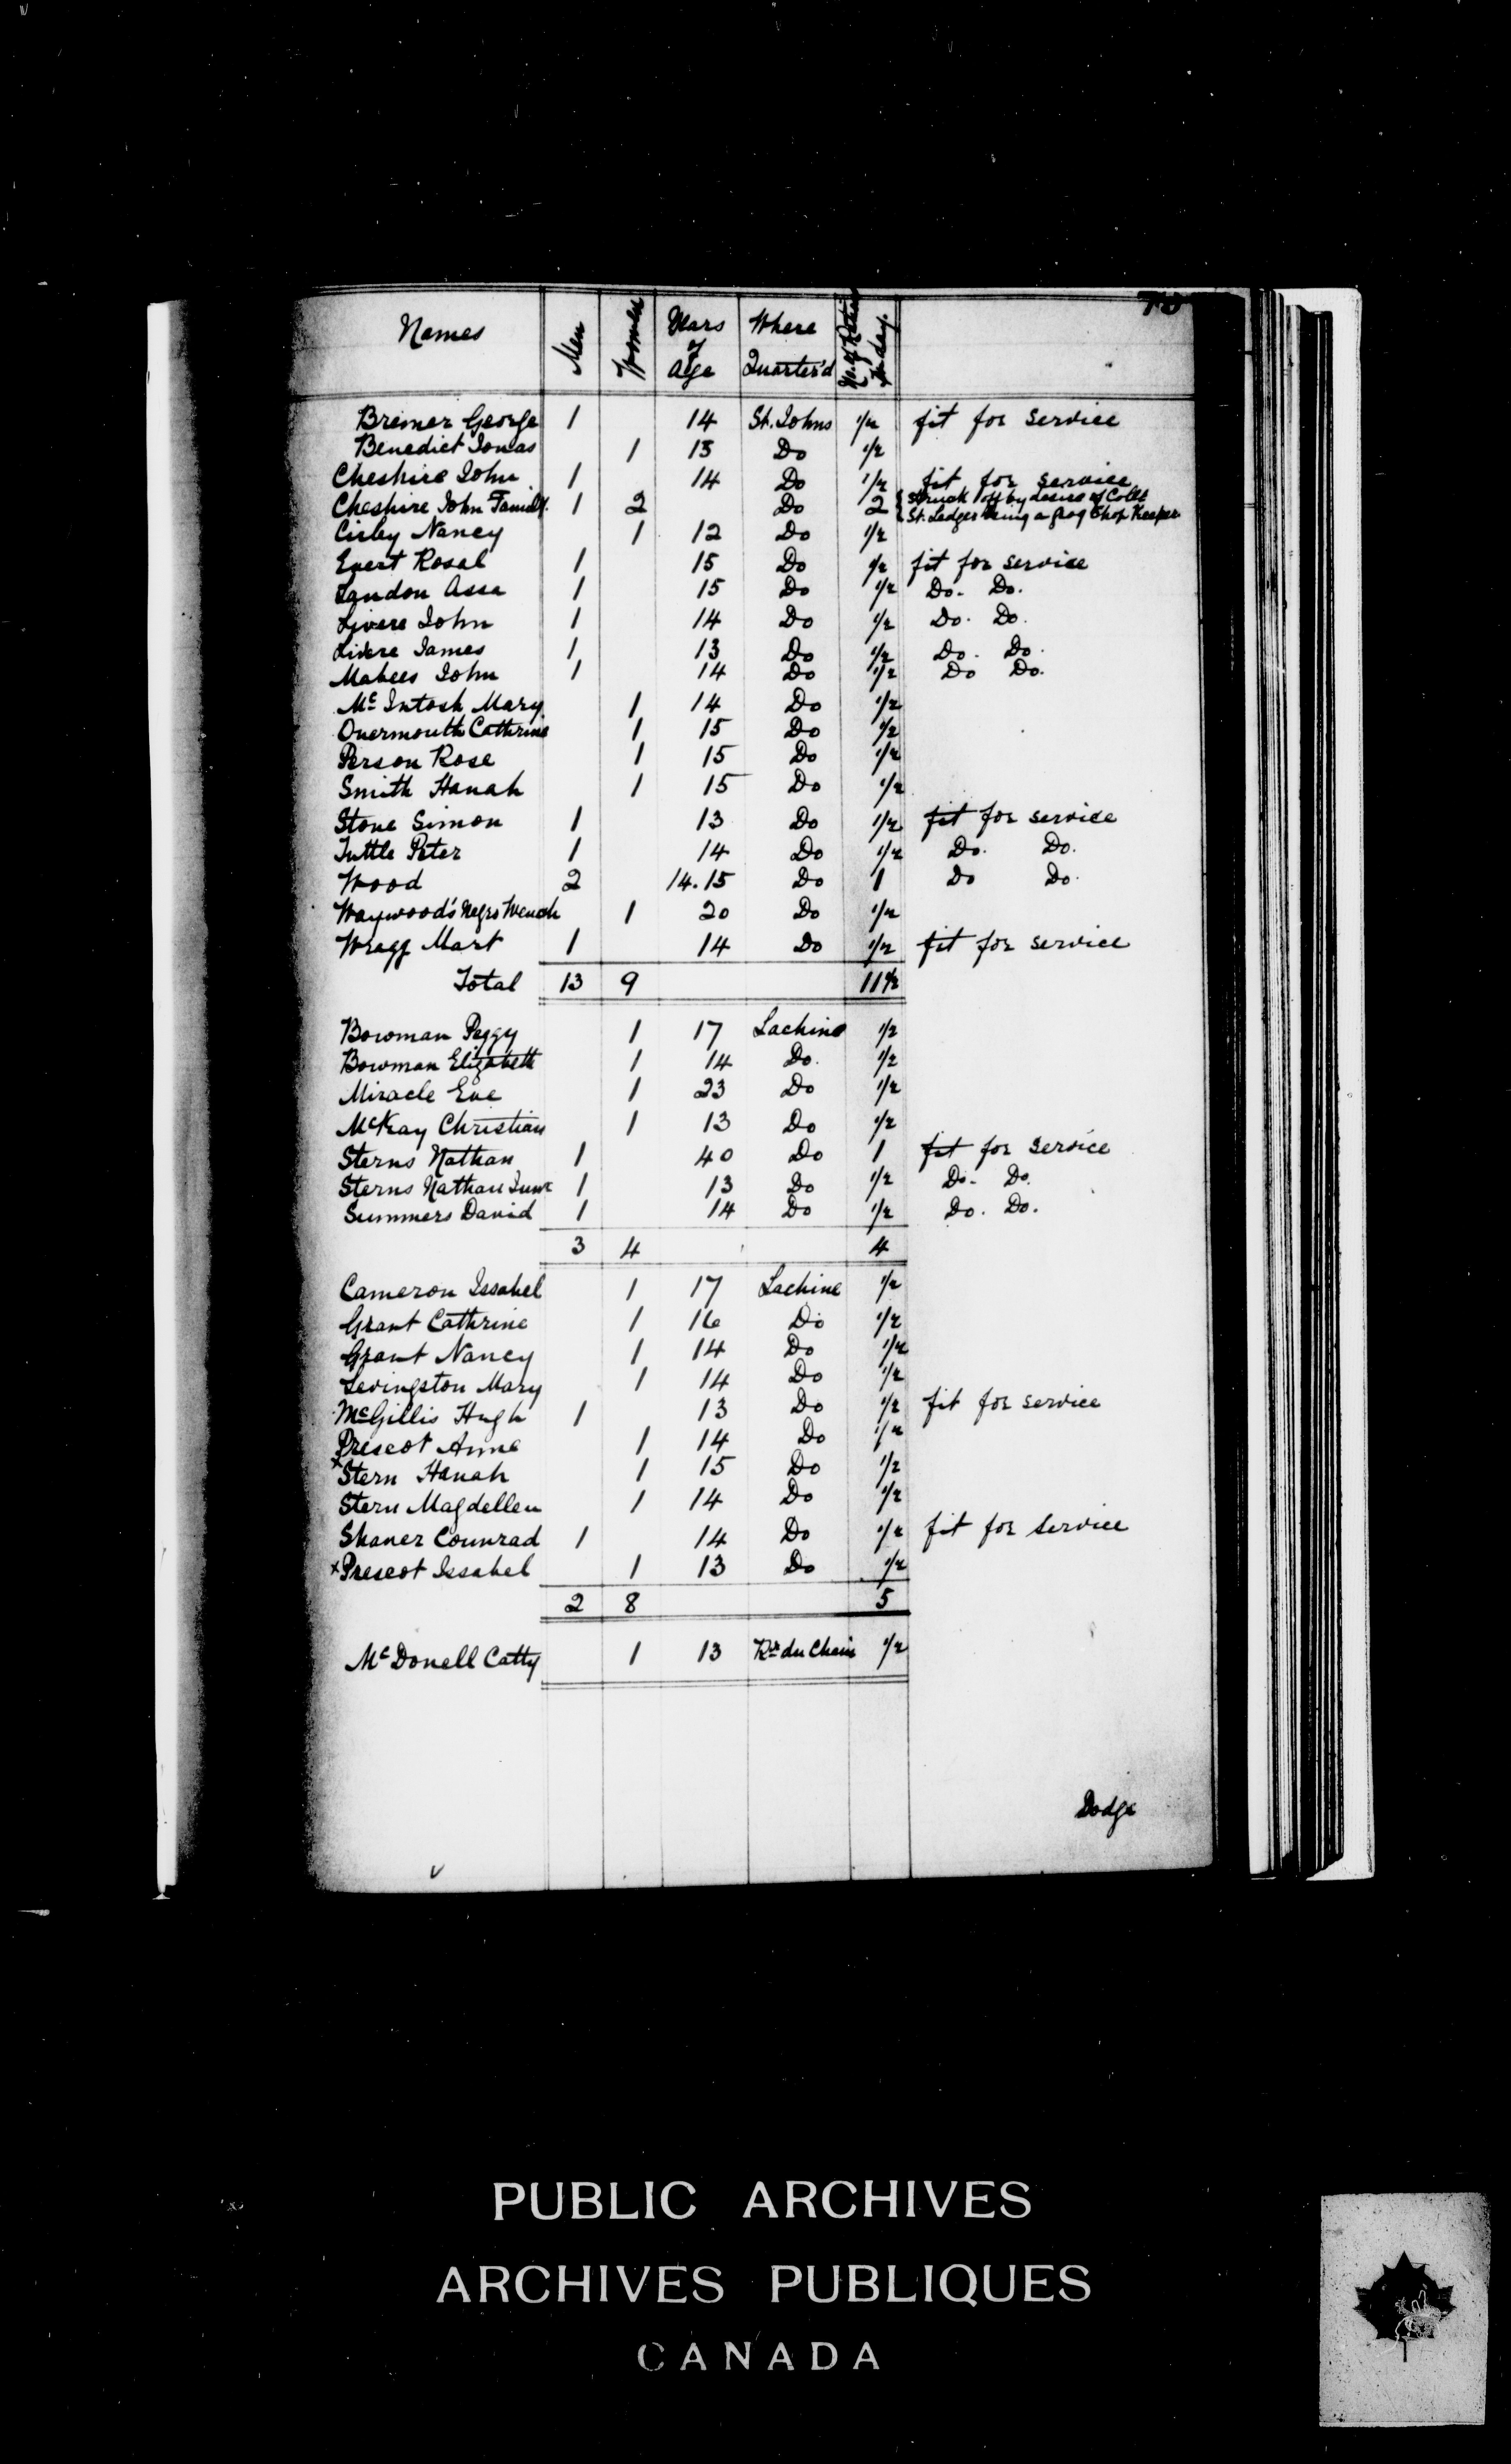 Names Men Women Years of Age Where Quarter'd No. of Rations Per day.
Bremer George 1 14 St. Johns 1/2 fit for service
Benedict Jonas 1 13 Do 1/2
Cheshire John 1 14 Do 1/2 fit for service
Cheshire John Family. 1 2 Do 2 struck off by desire of Collt
St. Ledger being a grog Shop Keeper
Cirby Nancy 1 12 Do 1/2
Evert Rosal 1 15 Do 1/2 fit for service
Landon Assa 1 15 Do 1/2 Do. Do.
Livere John 1 14 Do 1/2 Do. Do.
Livere James 1 13 Do 1/2 Do. Do.
Mabees John 1 14 Do 1/2 Do Do.
Mc Intosh Mary 1 14 Do 1/2
Overmouth Cathrine 1 15 Do 1/2
Person Rose 1 15 Do 1/2
Smith Hanah 1 15 Do 1/2
Stone Simon 1 13 Do 1/2 fit for service
Tuttle Peter 1 14 Do 1/2 Do. Do.
Wood 2 14.15 Do 1 Do Do.
Waywood's Negro Wench 1 20 Do 1/2
Wragg Mart 1 14 Do 1/2 fit for service
Total 13 9 11 1/2
Bowman Peggy 1 17 Lachine 1/2
Bowman Elizabeth 1 14 Do. 1/2
Miracle Eve 1 23 Do 1/2
McKay Christian 1 13 Do 1/2
Sterns Nathan 1 40 Do 1 fit for service
Sterns Nathan Junr 1 13 Do 1/2 Do. Do.
Summers David 1 14 Do 1/2 Do. Do.
3 4 4
Cameron Issabel 1 17 Lachine 1/2
Grant Cathrine 1 16 Do 1/2
Grant Nancy 1 14 Do 1/2
Levingston Mary 1 14 Do 1/2
McGillis Hugh 1 13 Do 1/2 fit for service
Prescot Anne 1 14 Do 1/2
x Stern Hanah 1 15 Do 1/2
Stern Magdellen 1 14 Do 1/2
Shaner Counrad 1 14 Do 1/2 fit for service
x Prescot Issabel 1 13 Do 1/2
2 8 5
Mc Donell Catty 1 13 Rr du Chein 1/2
Dodge
PUBLIC ARCHIVES
ARCHIVES PUBLIQUES
CANADA